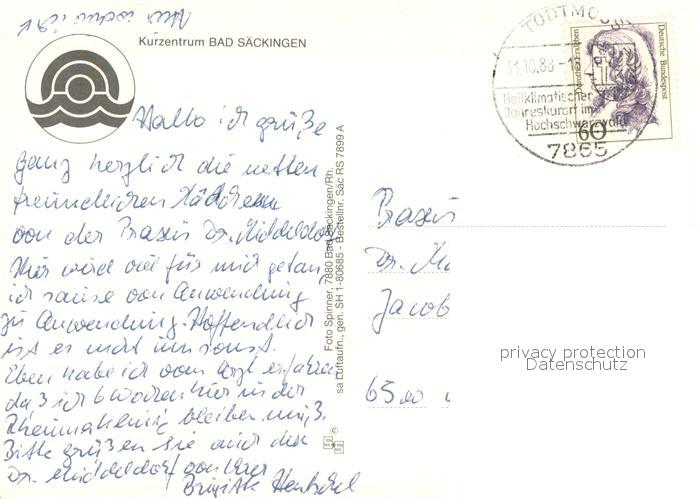 Kurzentrum BAD SÄCKINGEN
Hallo ich grüße
ganz herzlich die netten
freundlichen Mädchen
von der Praxis Dr. Middeldorf
Hier wird viel für mich getan,
ich sause von Anwendung
zu Anwendung. Hoffendlich
ist es nicht umsonst.
Eben habe ich vom Arzt erfahren
daß ich 6 Wochen hier in der
Rheumaklinik bleiben muß.
Bitte grüßen sie auch den
Dr. Middeldorf von Ihrer
Brigitte Hentschel
Foto Spinner, 7880 Bad Säckingen/Rh.
sa Luftaufn., gen. SH 1-80685 - Bestellnr. Säc RS 7899 A
TODTMOOS
31.10.88-1
Heilklimatischer
Jahreskurort im
Hochschwarzwald
7865
Deutsche Bundespost
60
Praxis
Dr. Mi
Jacob
6500
privacy protection
Datenschutz